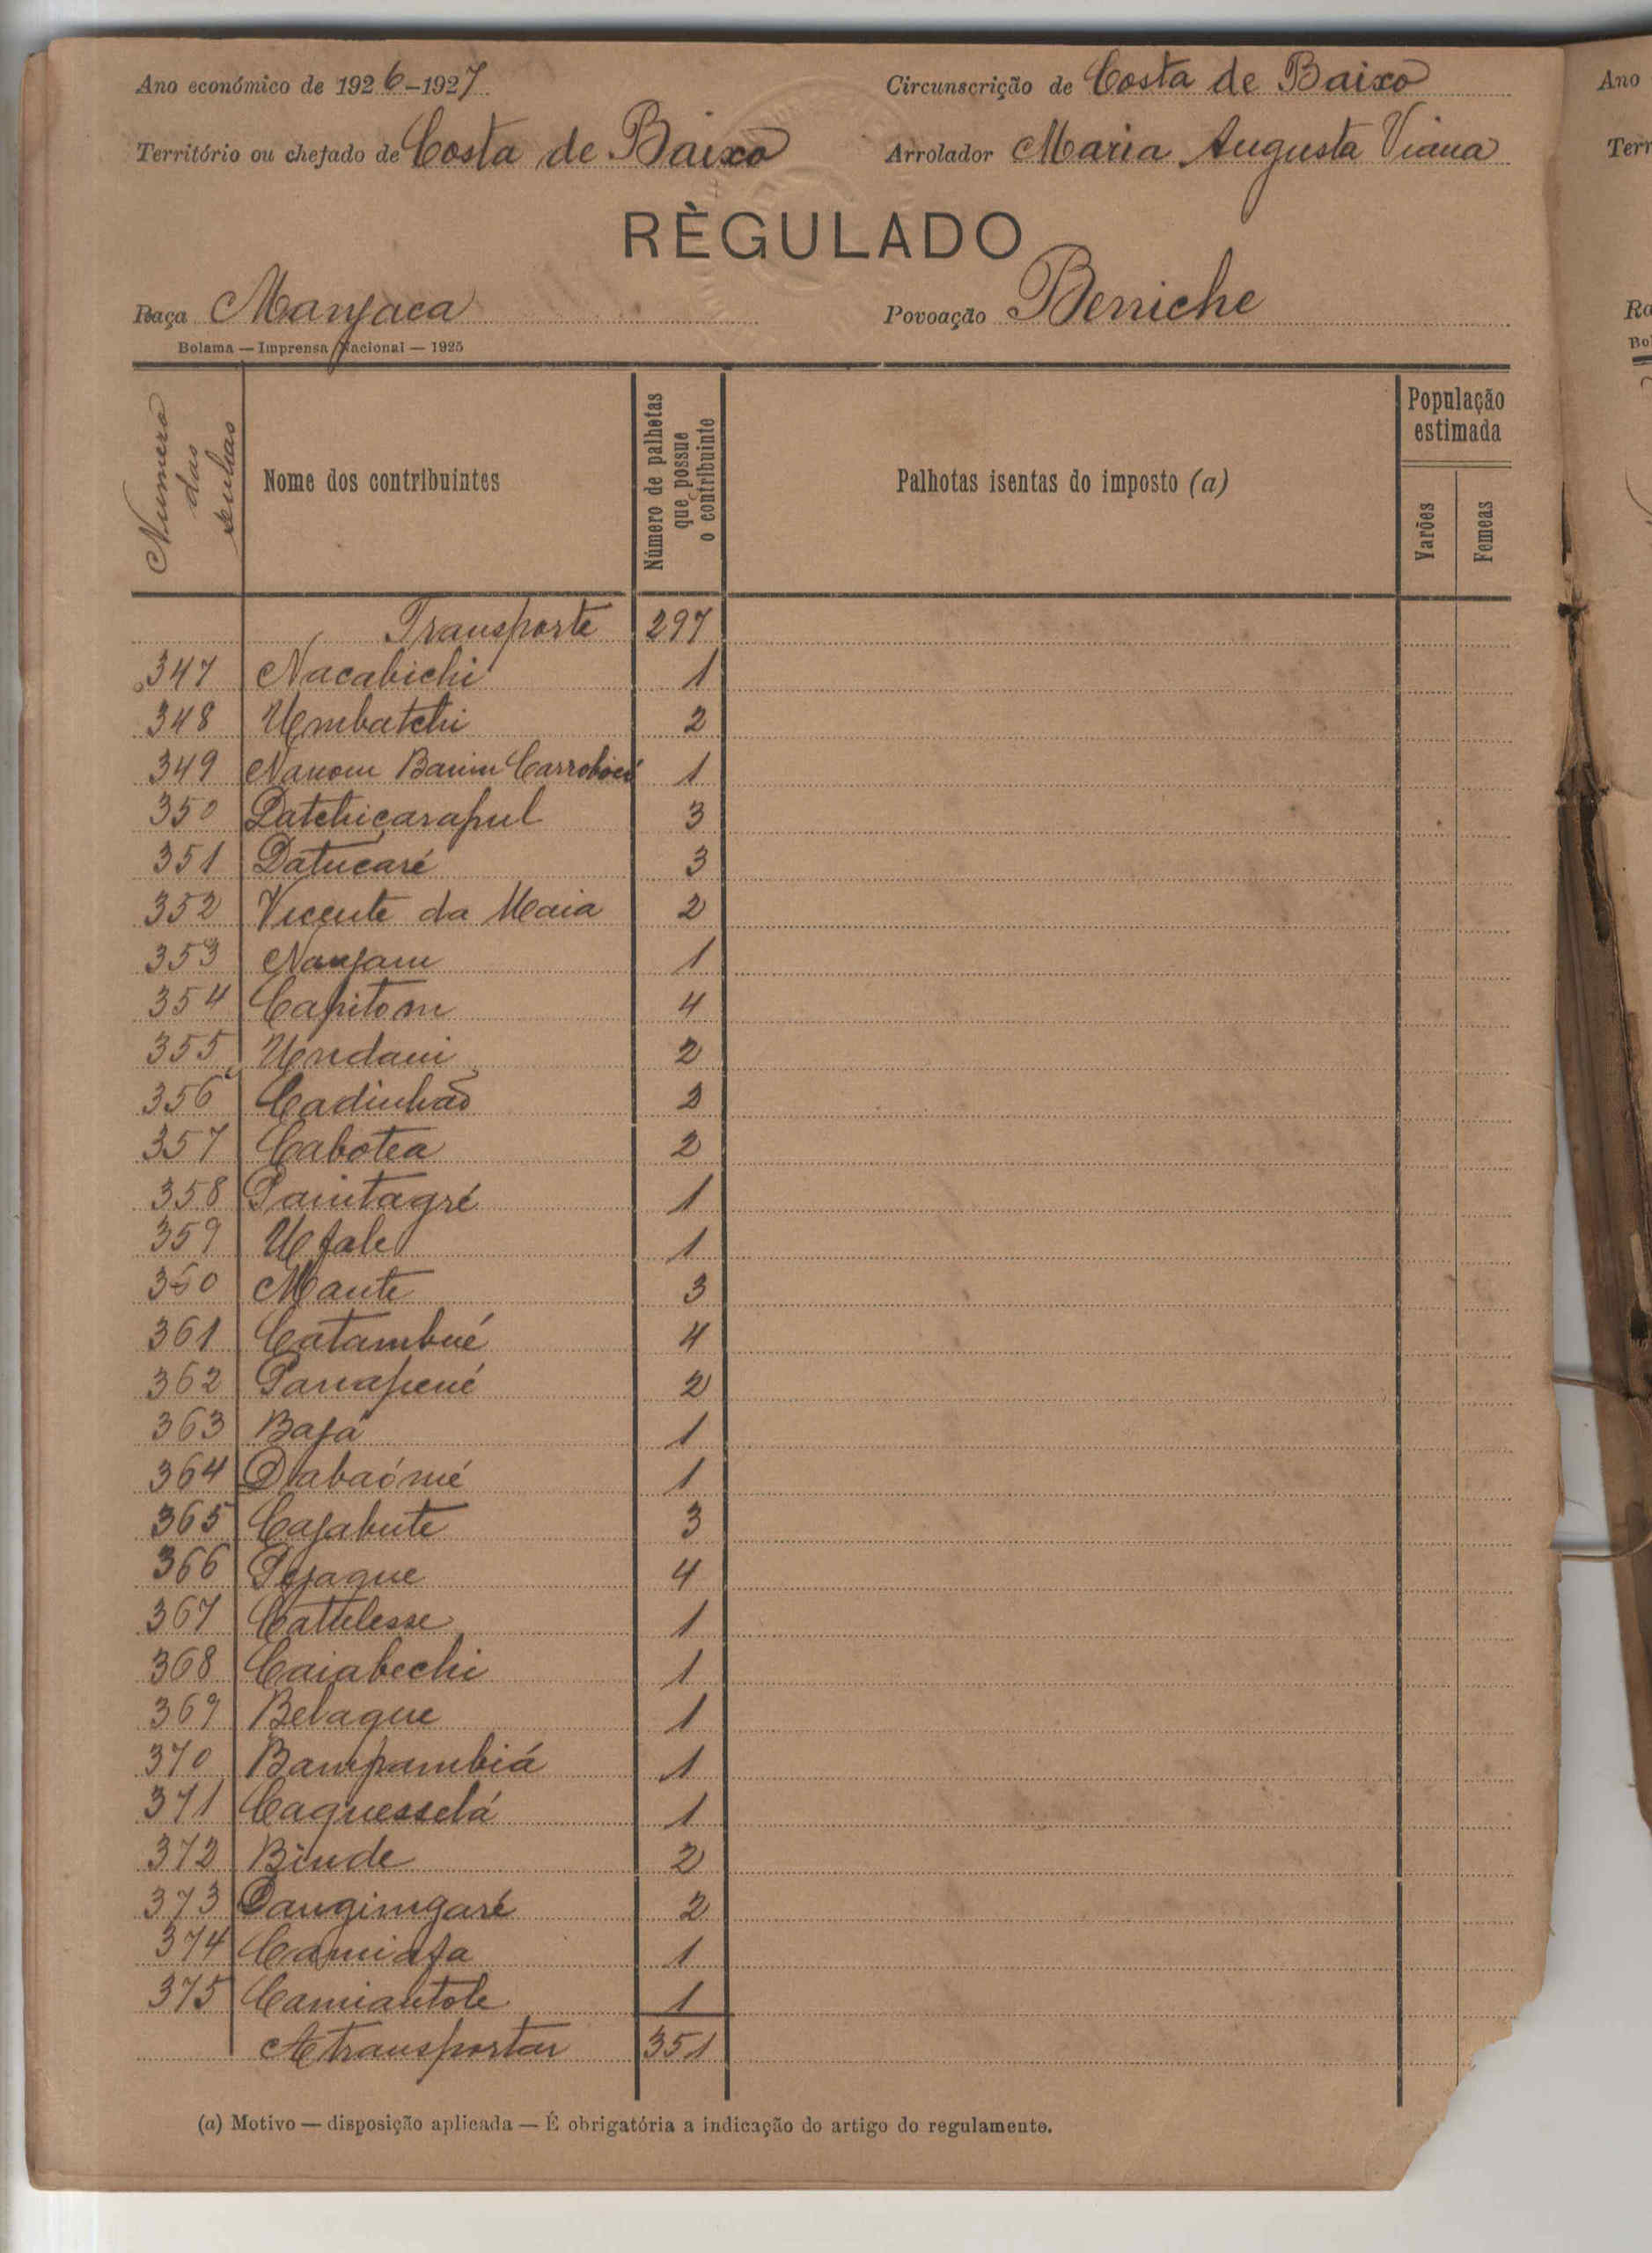 Ano económico de 1926-1927. Circunscrição de Costa de Baixo
Território ou chefado de Costa de Baixo Arrolador Maria Augusta Viana
RÈGULADO
Raça Manjaca Povoação Berriche
Bolama — Imprensa Nacional — 1925
Numero das senhas
Nome dos contribuintes
Número de palhotas que possue o contribuinte
Palhotas isentas do imposto (a)
População estimada
Varões
Femeas
Transporte 297
347 Nacabichi 1
348 Umbatchi 2
349 Banim 1
350 Datchiçarapul 3
351 Datucaré 3
352 Vicente da Maia 2
353 Nanjam 1
354 Capitom 4
355 Undani 2
356 Cadinhão 2
357 Cabotea 2
358 Paintagré 1
359 Ufale 1
360 Mante 3
361 Catambué 4
362 2
363 Bajá 1
364 1
365 Cajabute 3
366 Pejaque 4
367 Cattelesse 1
368 Caiabechi 1
369 Belaque 1
370 Bampambiá 1
371 Caquesselá 1
372 Binde 2
373 2
374 Camiafa 1
375 Camiantole 1
A transportar 351
(a) Motivo — disposição aplicada — É obrigatória a indicação do artigo do regulamento.
Ano
Terr
Ra
Bo